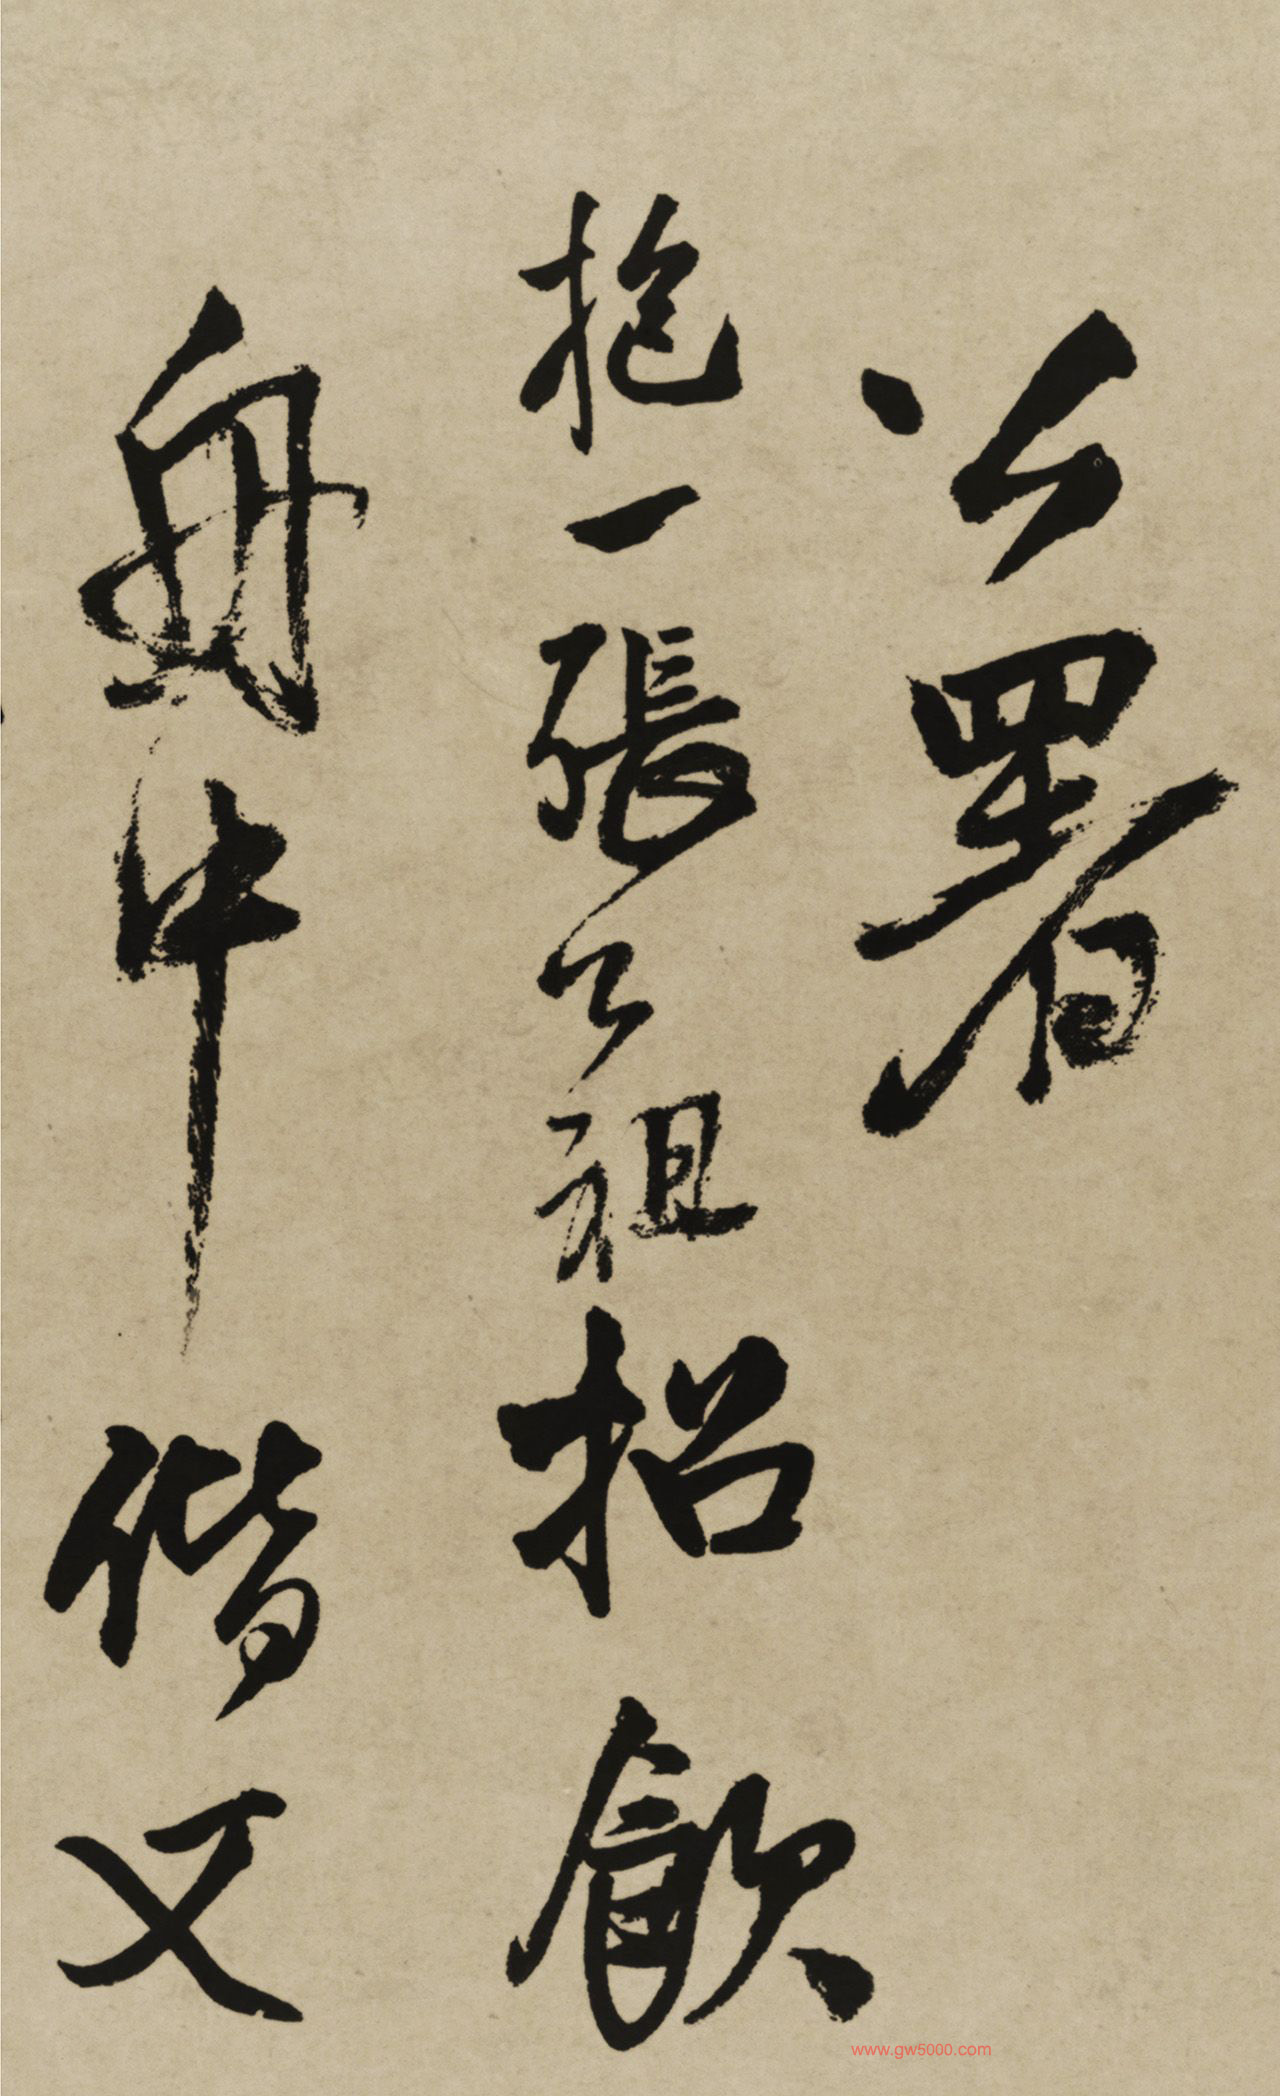 公署
抱一張公祖招飲
舟中偕又
www.gw5000.com